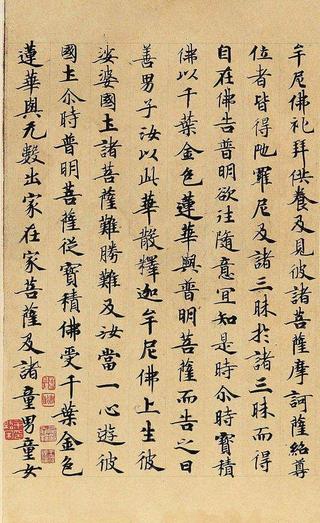 牟尼佛礼拜供養及見彼諸菩薩摩訶薩紹尊
位者皆得陁羅尼及諸三昧於諸三昧而得
自在佛告普明欲往隨意宜知是時尒時寶積
佛以千葉金色蓮華與普明菩薩而告之曰
善男子汝以此華散釋迦牟尼佛上生彼
娑婆國土諸菩薩難勝難及汝當一心遊彼
國土尒時普明菩薩從寶積佛受千葉金色
蓮華與无數出家在家菩薩及諸童男童女